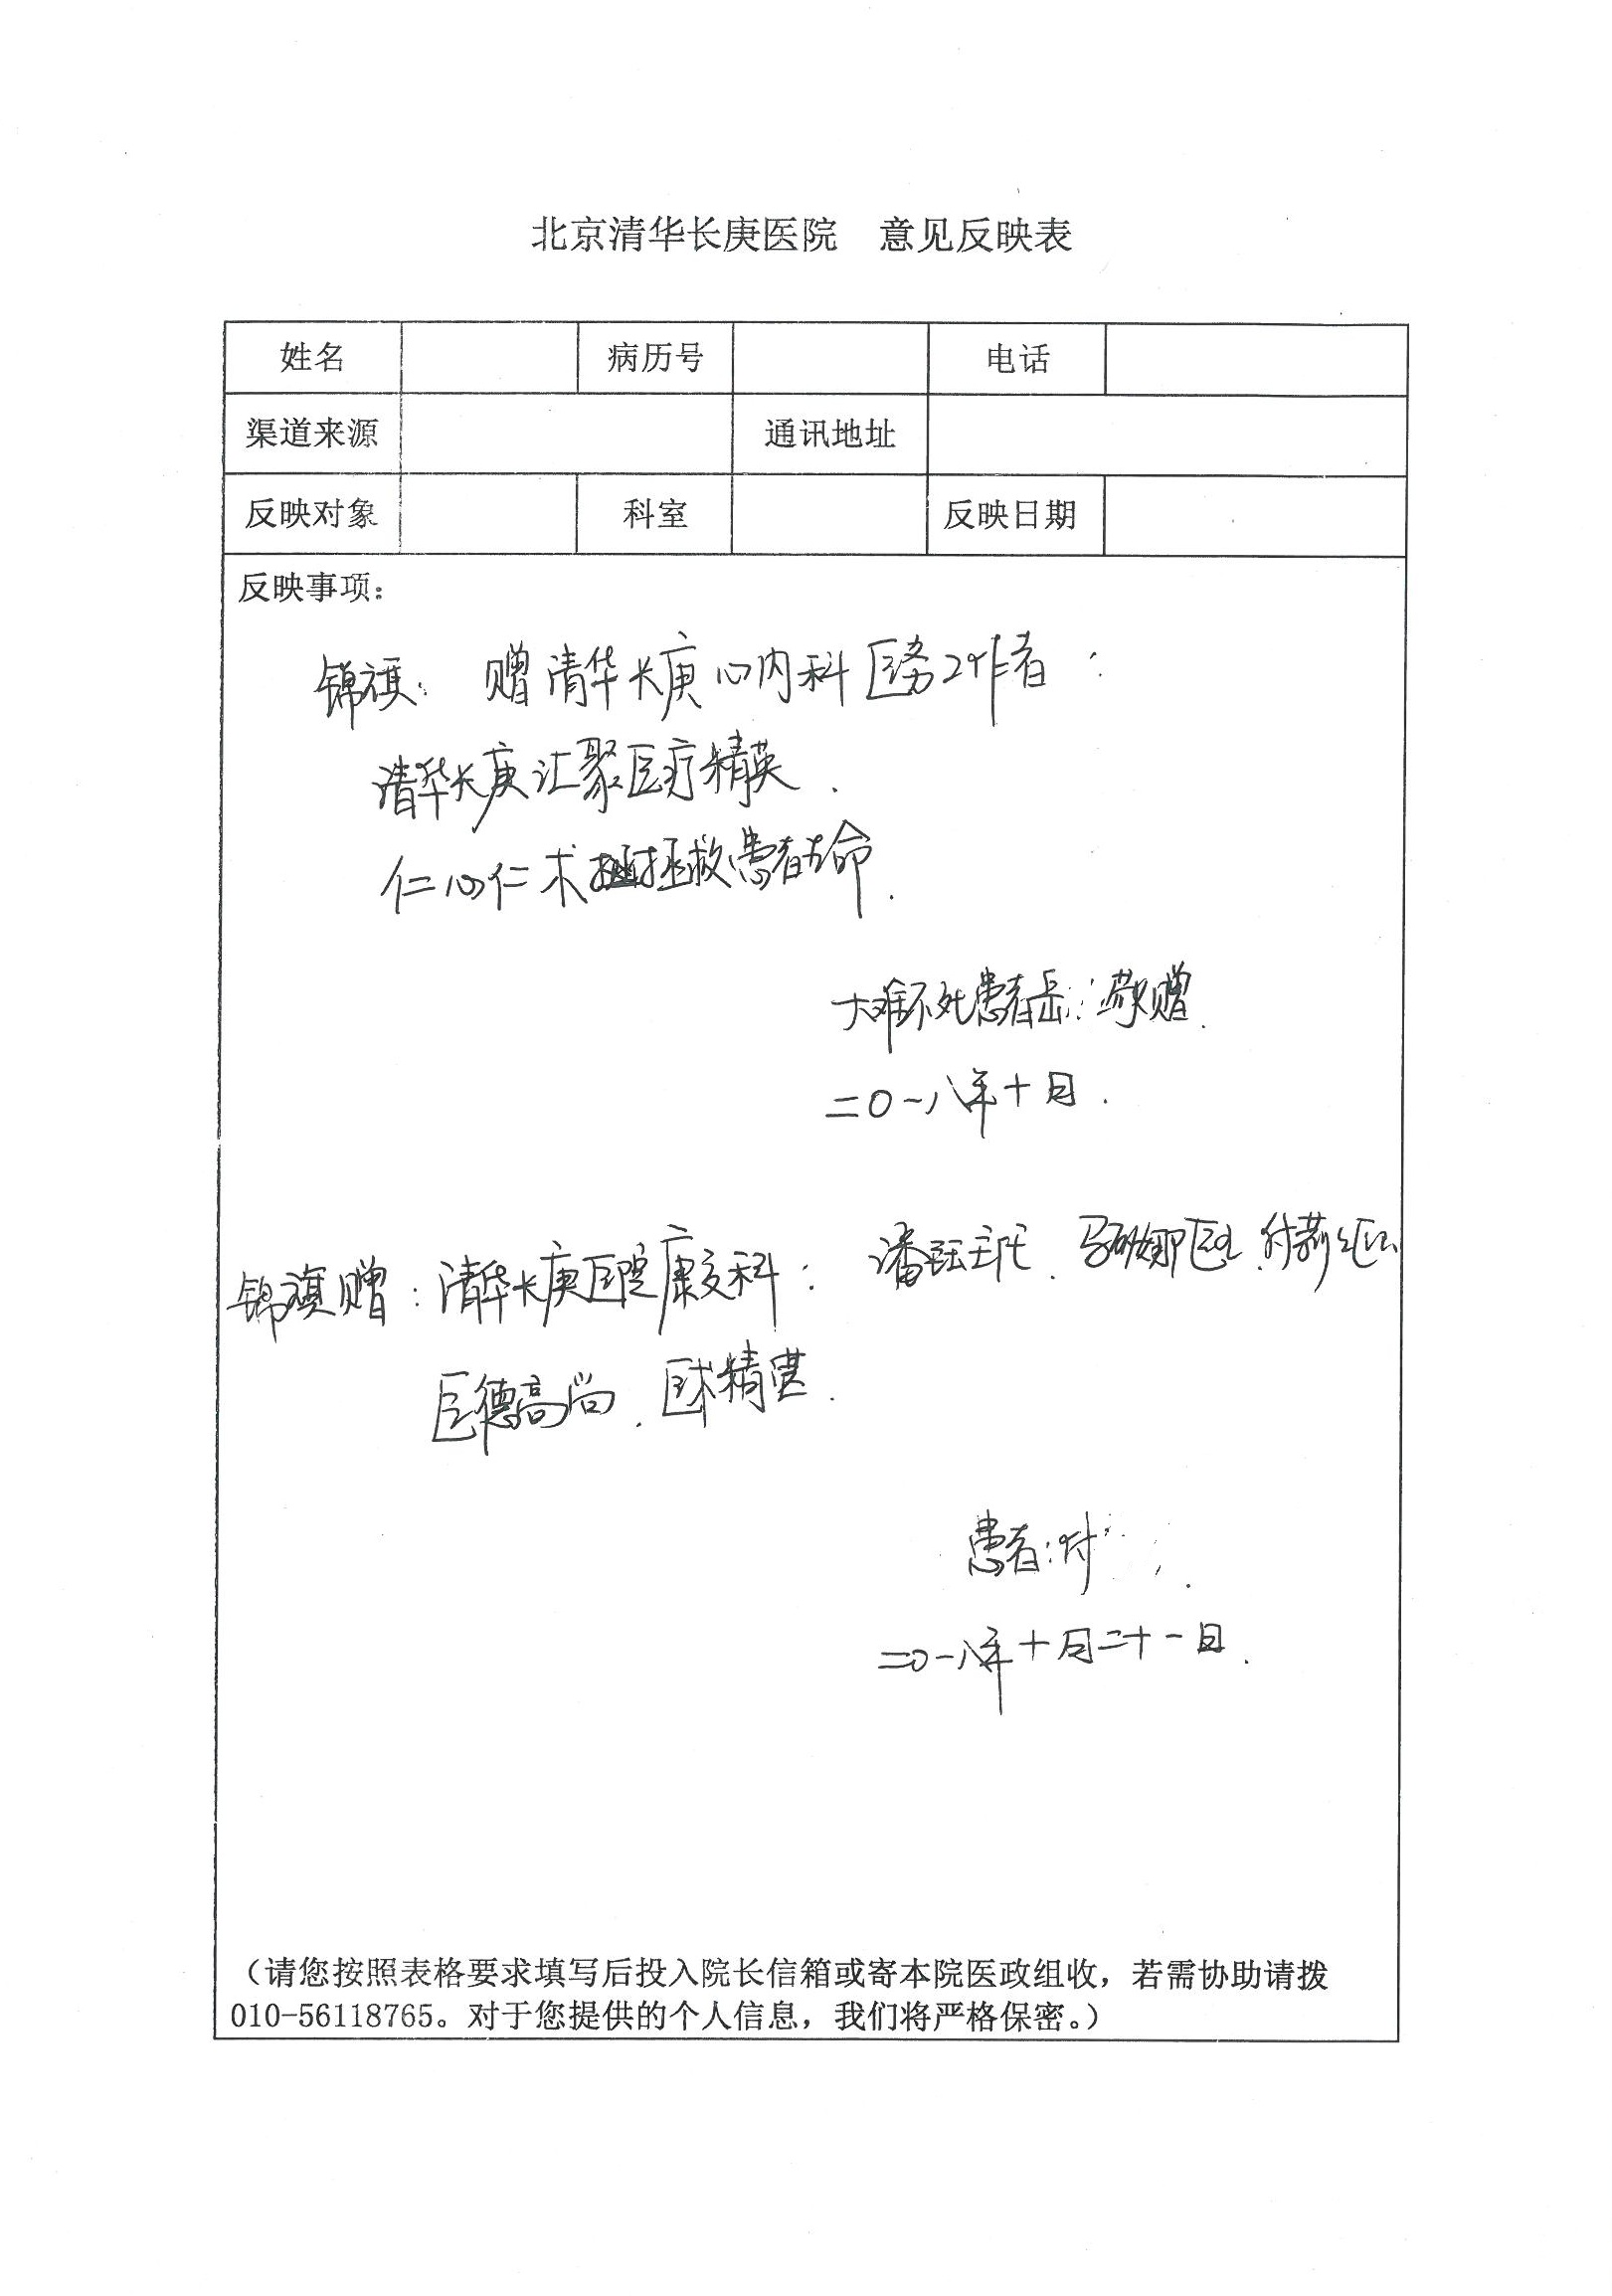 北京清华长庚医院 意见反映表
姓名 病历号 电话
渠道来源 通讯地址
反映对象 科室 反映日期
反映事项：
锦旗：赠清华长庚心内科医务工作者：
清华长庚汇聚医疗精英.
仁心仁术拯救患者生命.
大难不死患者岳 敬赠.
二〇一八年十月.
锦旗赠：清华长庚医院康复科： 潘钰主任、马丽娜医生、付莉红医
医德高尚、医术精湛.
患者：付
二〇一八年十月二十一日.
（请您按照表格要求填写后投入院长信箱或寄本院医政组收，若需协助请拨
010-56118765。对于您提供的个人信息，我们将严格保密。）